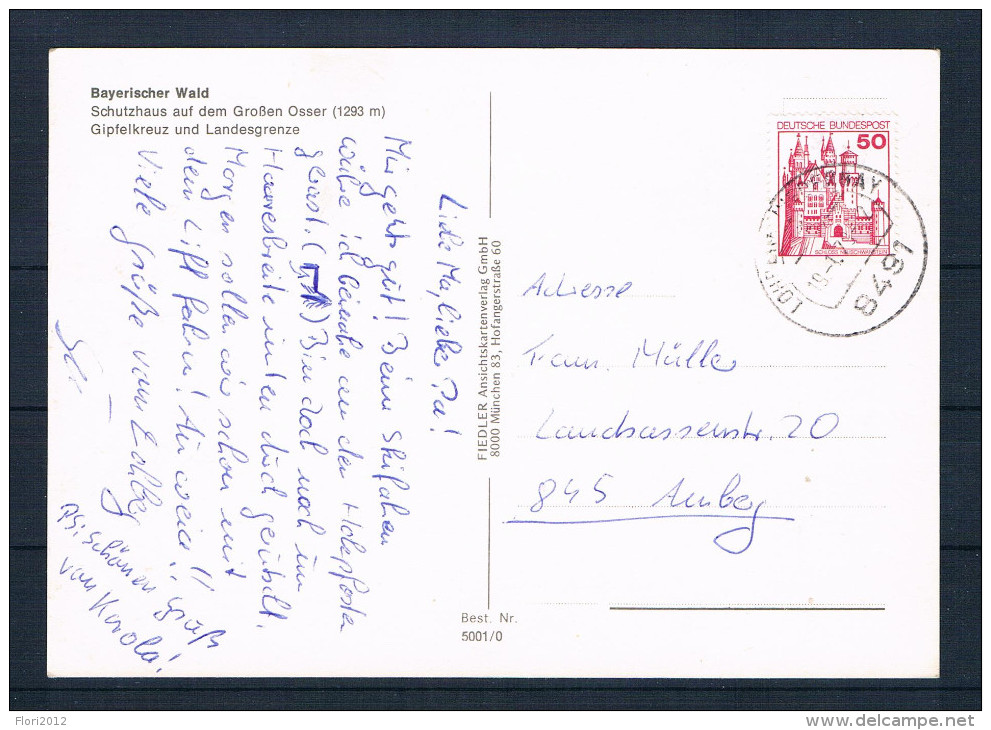 Bayerischer Wald
Schutzhaus auf dem Großen Osser (1293 m)
Gipfelkreuz und Landesgrenze
Liebe Ma, liebe Pa!
Mir get's gut! Beim Skifahren
wäre ich beinahe an der
gerast. ( ) Bin doch noch um
Haaresbreite unten durch
Morgen sollen wir schon mit
dem Lift fahrn! Au weia!!
Viele Grüße vom
PS: schönen Gruß
von Karola!
FIEDLER Ansichtskartenverlag GmbH
8000 München 83, Hofangerstraße 60
Best. Nr.
5001/0
DEUTSCHE BUNDESPOST
50
SCHLOSS NEUSCHWANSTEIN
8478
Adresse
Fam. Müller
Landsassenstr. 20
845 Amberg
Flori2012
delcampe.net